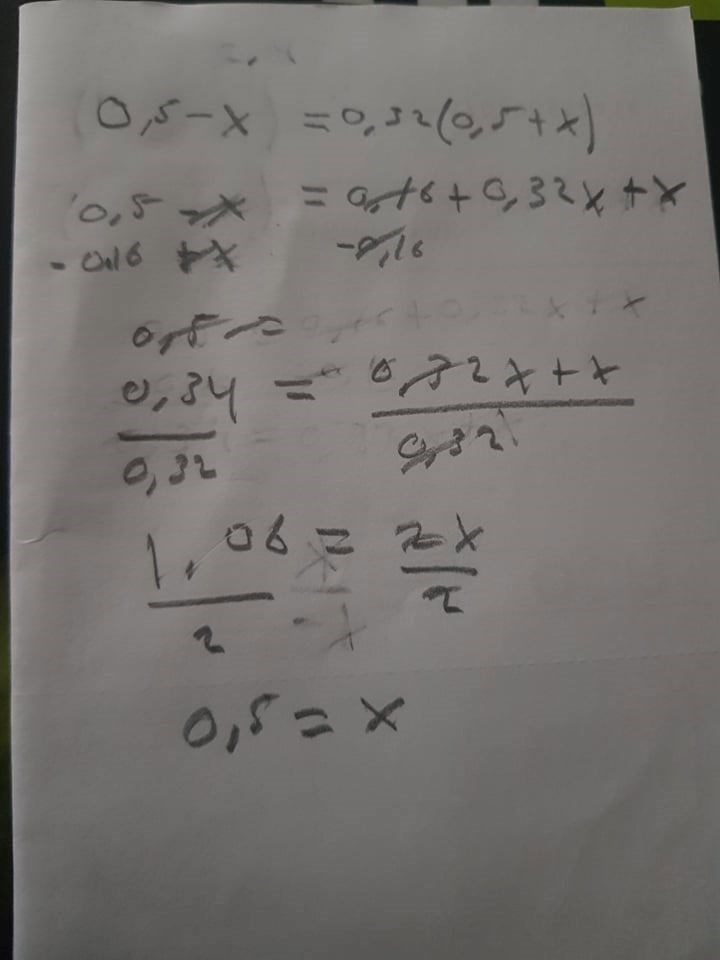 2,4
(0,5-x) = 0,32(0,5+x)
(0,5-x) = 0,16+0,32x+x
-0,16 +x -0,16
0,5-=
0,34 = 0,32x+x
0,32 0,32
1,06 = 2x
2 2
0,5 = x